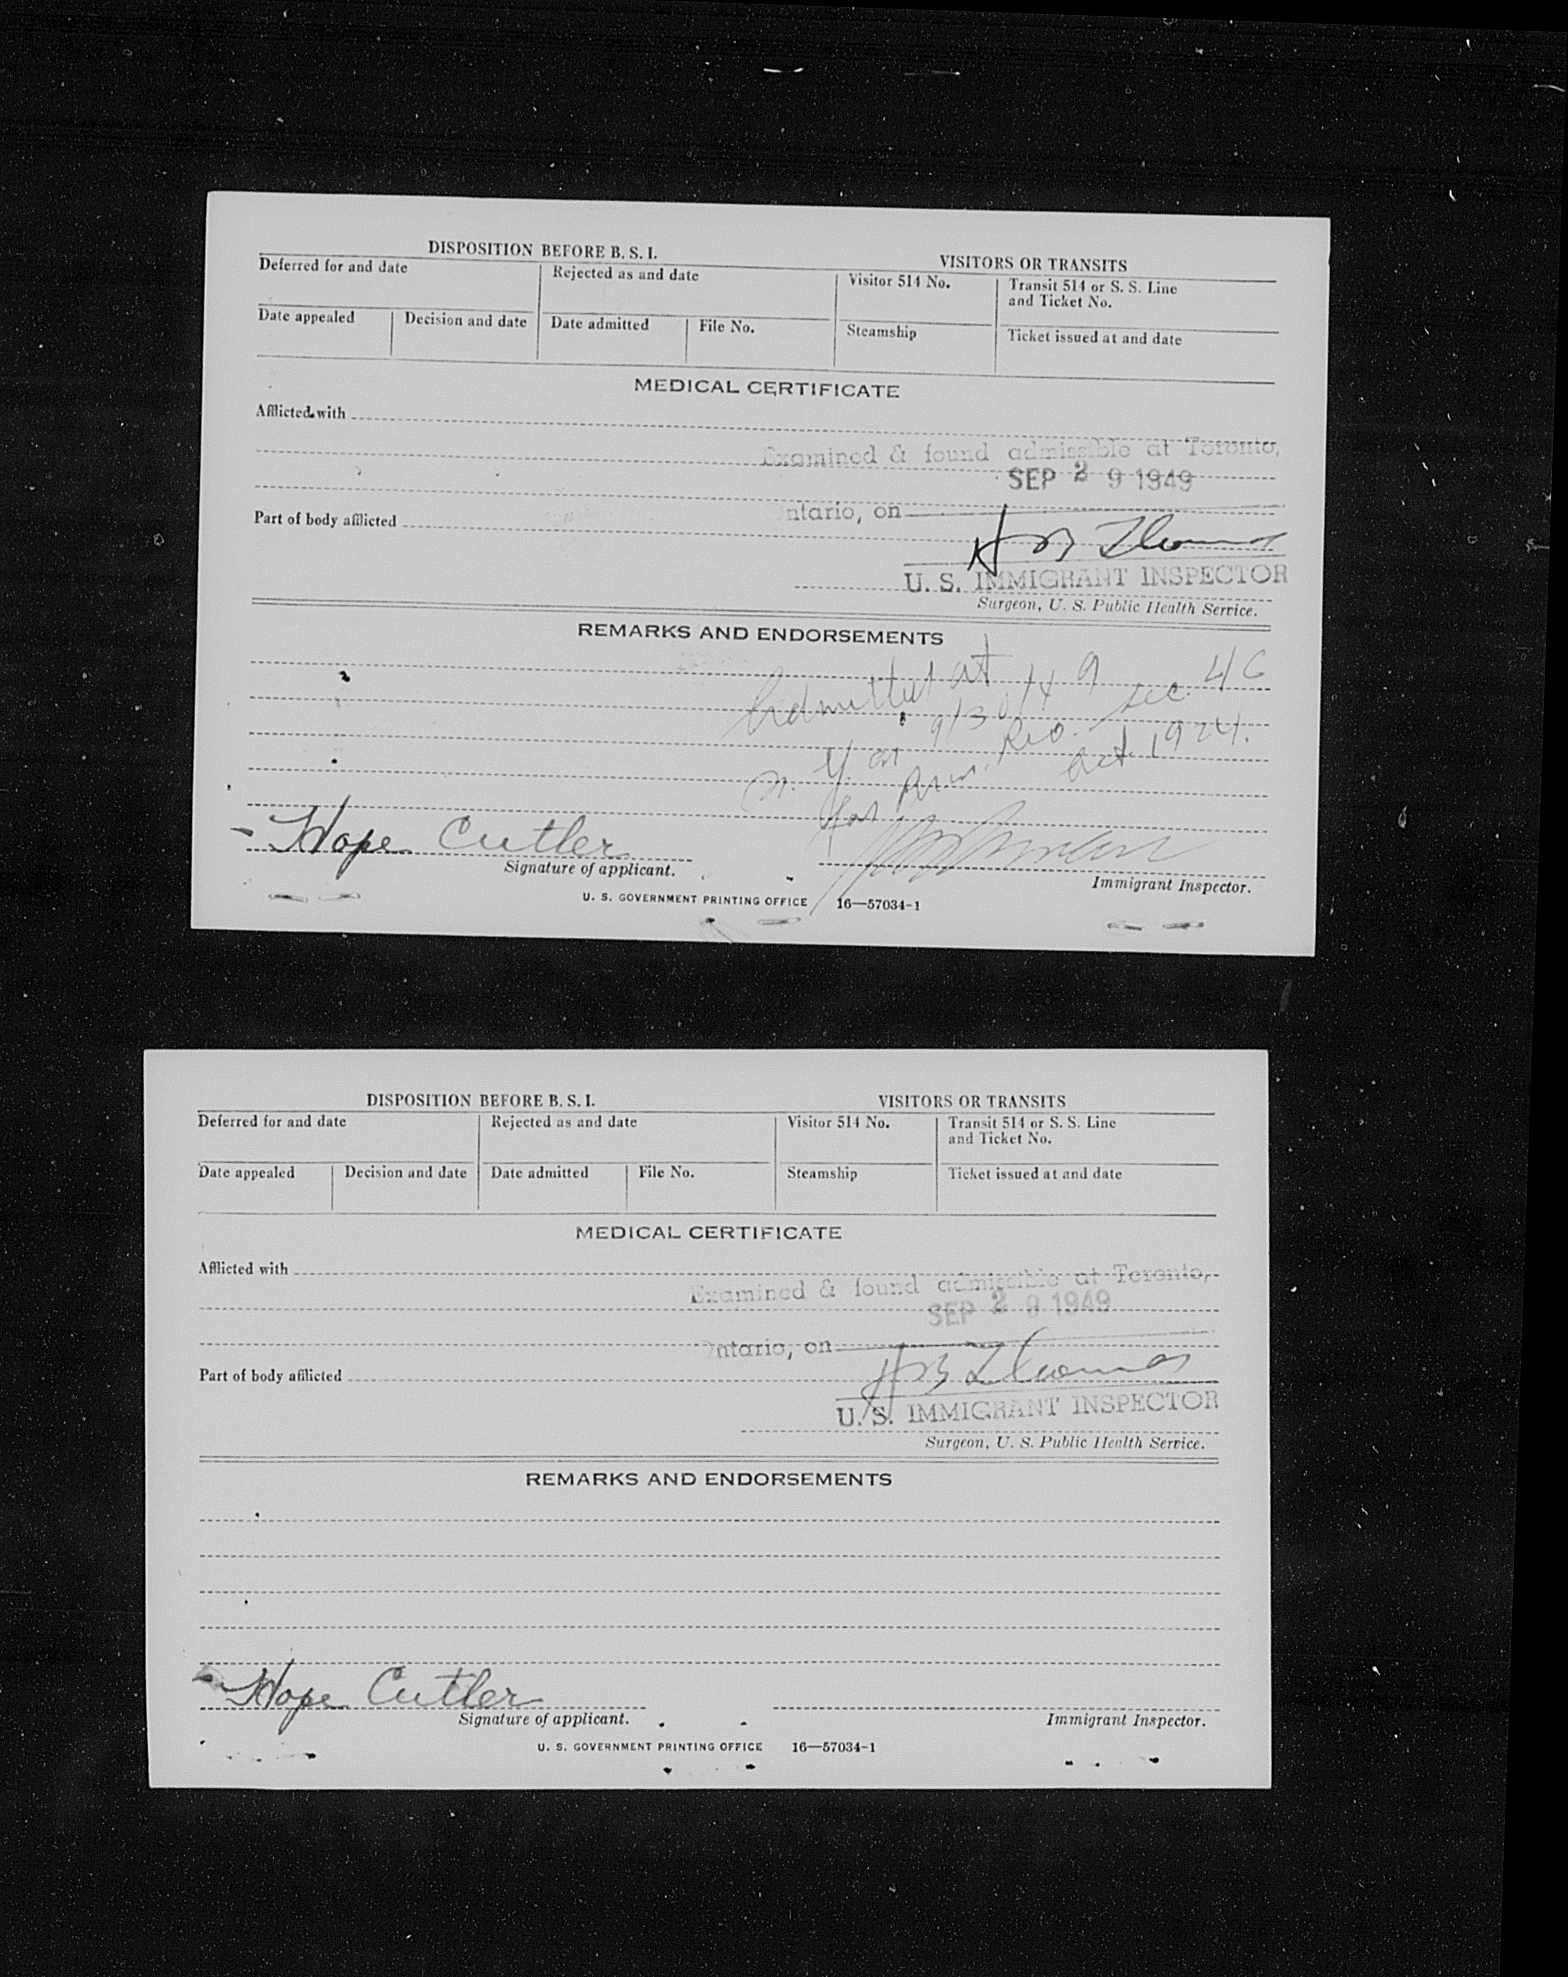 DISPOSITION BEFORE B. S. I.
VISITORS OR TRANSITS
Deferred for and date
Rejected as and date
Visitor 514 No.
Transit 514 or S. S. Line
and Ticket No.
Date appealed
Decision and date
Date admitted
File No.
Steamship
Ticket issued at and date
MEDICAL CERTIFICATE
Afflicted with
Examined & found admissible at Toronto,
SEP 29 1949
ntario, on
Part of body afflicted
H B Thomas
U. S. IMMIGRANT INSPECTOR
Surgeon, U. S. Public Health Service.
REMARKS AND ENDORSEMENTS
Admitted at
9/30/49 sec. 4C
Act 1924.
Hope Cutler
Signature of applicant.
Immigrant Inspector.
U. S. GOVERNMENT PRINTING OFFICE 16—57034-1
DISPOSITION BEFORE B. S. I.
VISITORS OR TRANSITS
Deferred for and date
Rejected as and date
Visitor 514 No.
Transit 514 or S. S. Line
and Ticket No.
Date appealed
Decision and date
Date admitted
File No.
Steamship
Ticket issued at and date
MEDICAL CERTIFICATE
Afflicted with
Examined & found admissible at Toronto,
SEP 29 1949
ntario, on
Part of body afflicted
H B Thomas
U. S. IMMIGRANT INSPECTOR
Surgeon, U. S. Public Health Service.
REMARKS AND ENDORSEMENTS
Hope Cutler
Signature of applicant.
Immigrant Inspector.
U. S. GOVERNMENT PRINTING OFFICE 16—57034-1